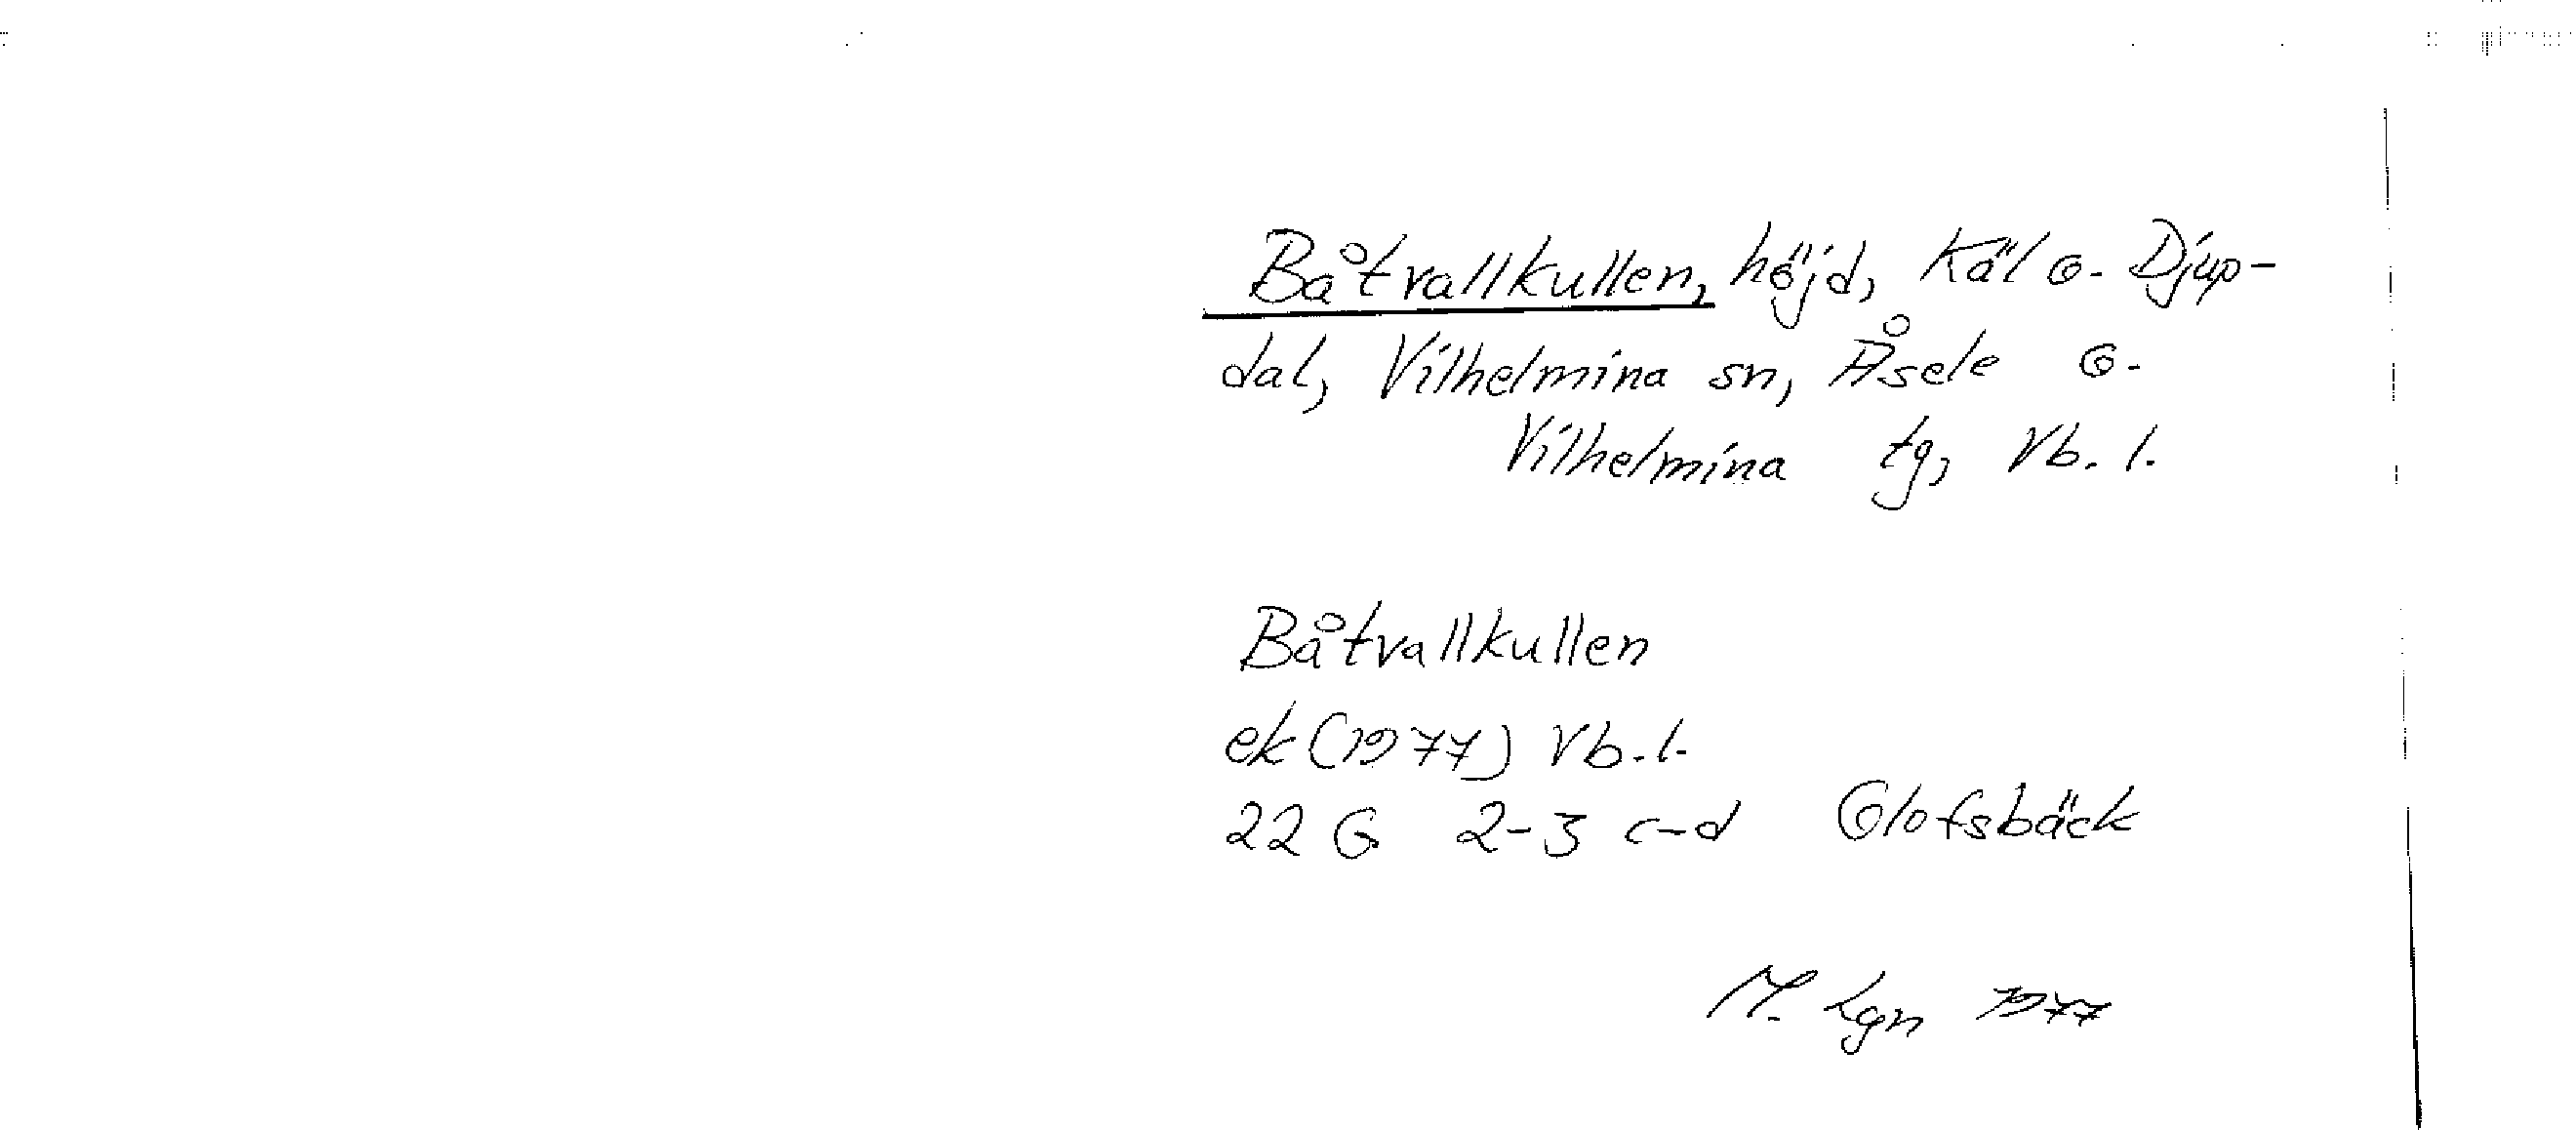 Båtvallkullen, höjd, Käl o. Djup-
dal, Vilhelmina sn, Åsele o.
Vilhelmina tg, Vb. l.
Båtvallkullen
ek (1977) Vb. l.
22 G 2-3 c-d Olofsbäck
M. Lgn 1977